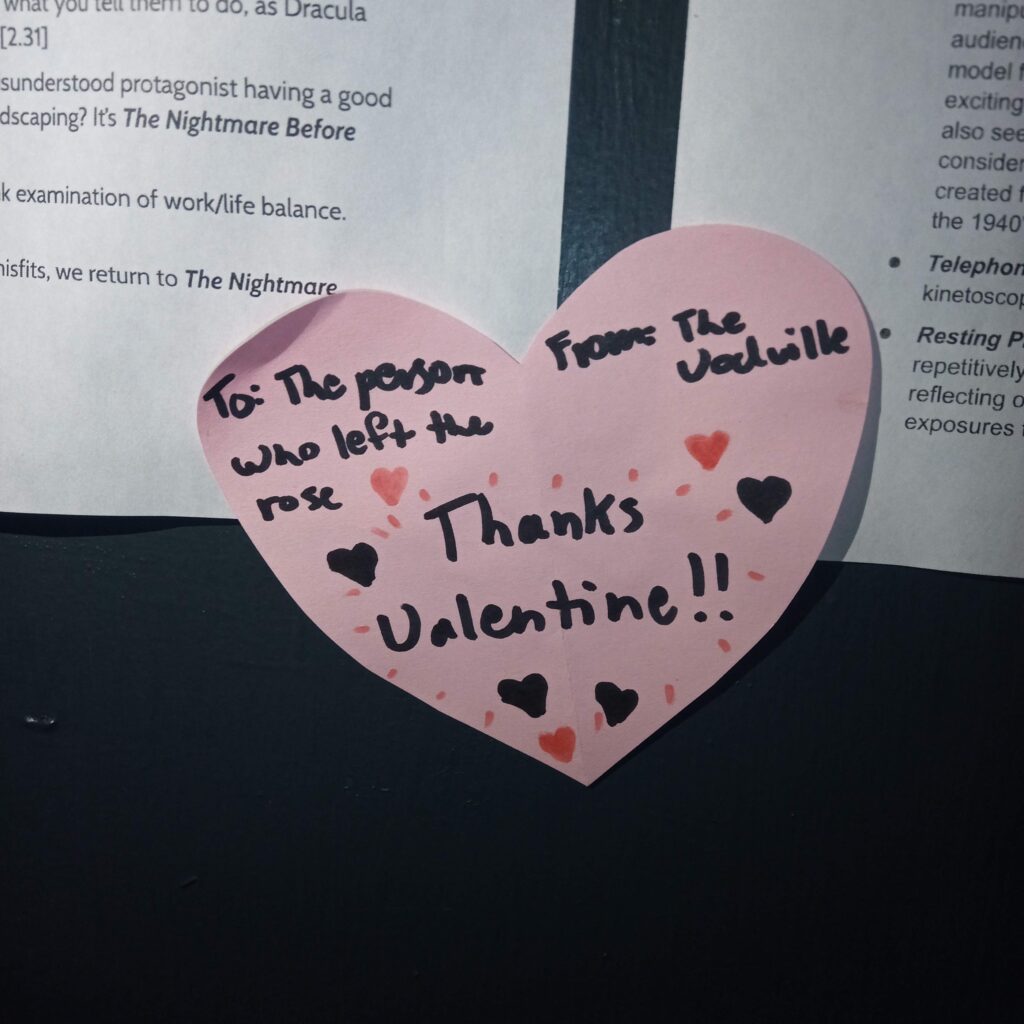 what you tell them to do, as Dracula
[2.31]
sunderstood protagonist having a good
dscaping? It's The Nightmare Before
k examination of work/life balance.
nisfits, we return to The Nightmare
To: The person
who left the
rose
From: The
Vodville
Thanks
Valentine!!
manipu
audien
model f
exciting
also see
consider
created f
the 1940'
• Telephon
kinetoscop
• Resting P
repetitively
reflecting o
exposures